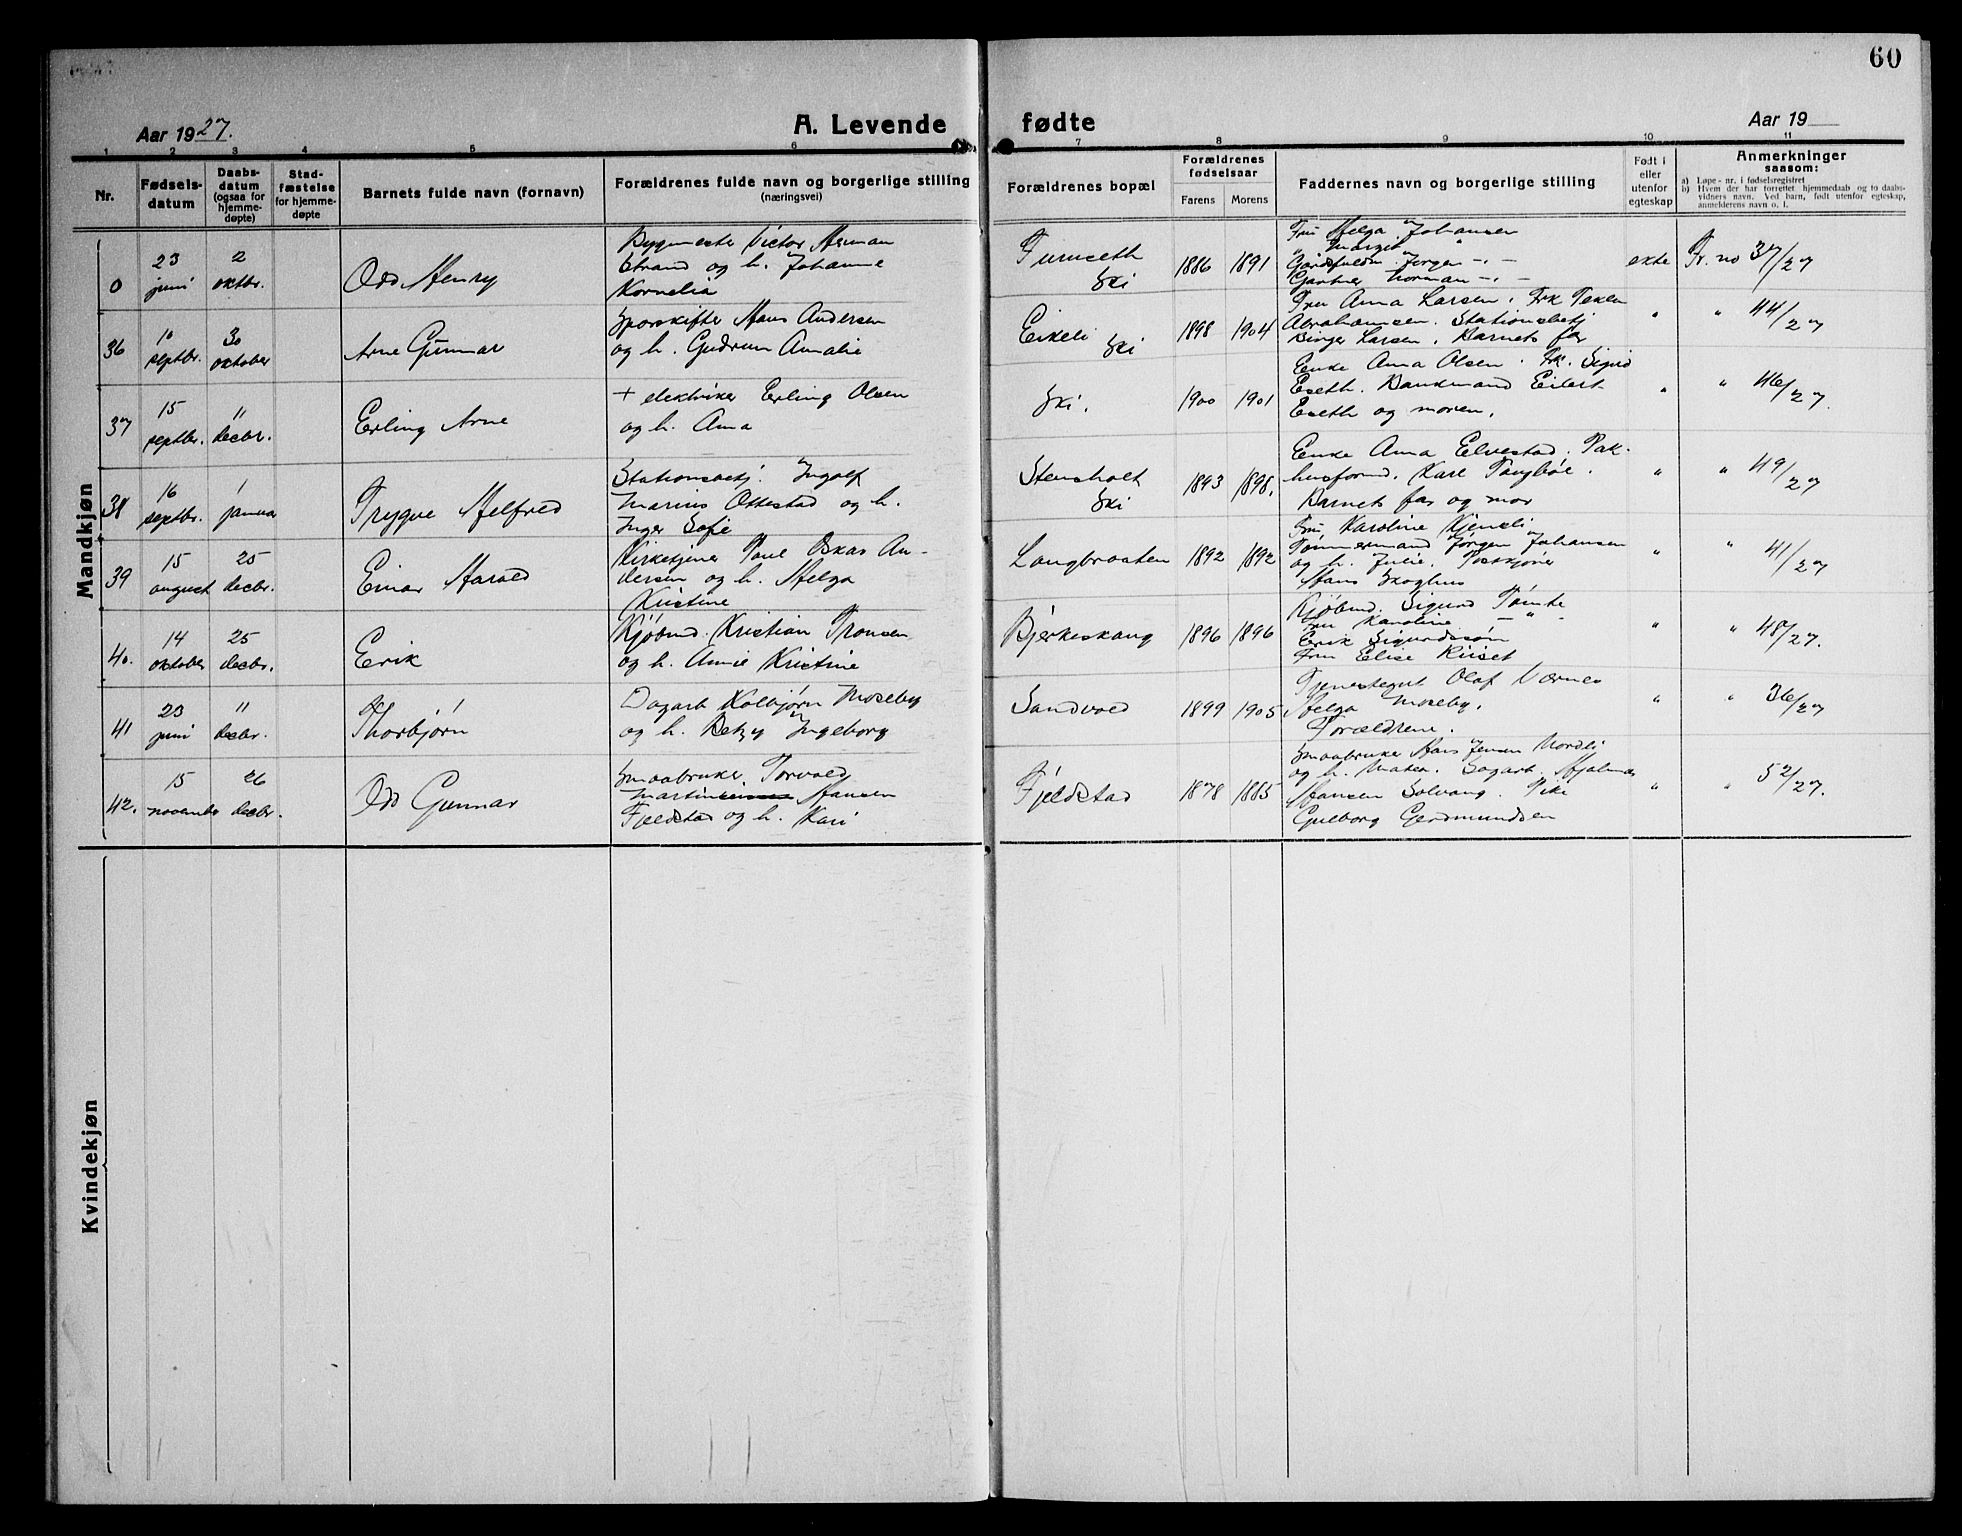 60
Aar 1927.
A. Levende fødte
Aar 19
1 2 3 4 5 6 7 8 9 10 11
Nr.
Fødsels-
datum
Daabs-
datum
(ogsaa for
hjemme-
døpte)
Stad-
fæstelse
for hjemme-
døpte
Barnets fulde navn (fornavn)
Forældrenes fulde navn og borgerlige stilling
(næringsvei)
Forældrenes bopæl
Forældrenes
fødselsaar
Farens
Morens
Faddernes navn og borgerlige stilling
Født i
eller
utenfor
egteskap
Anmerkninger
saasom:
a) Løpe-nr. i fødselsregistret
b) Hvem der har forrettet hjemmedaab og to daabs-
vidners navn. Ved barn, født utenfor egteskap,
anmelderens navn o. l.
Mandkjøn
0
23
juni
2
oktbr.
Odd Henry
Bygmester Victor Herman
Strand og h. Johanne
Kornelia
Furuseth
Ski
1886
1891
Fru Helga Johansen
" Margit "
Gårdsfuldm. Jørgen -"-
Gartner Norman -"-
ekte
Fr. no 37/27
36
10
septbr.
30
oktober
Arne Gunnar
Sporskifter Hans Andersen
og h. Gudrun Amalie
Eikeli
Ski
1898
1904
Fru Anna Larsen. Frk
Abrahamsen. Stationsbetj
Birger Larsen. Barnets far
"
" 44/27
37
15
septbr.
11
decbr.
Erling Arne
+ elektriker Erling Olsen
og h. Anna
Ski.
1900
1901
Enke Anna Olsen. Frk. Sigrid
Eseth. Bankmand Eilert
Eseth og moren.
"
" 46/27.
38
16
septbr.
1
januar
Trygve Helfred
Stationsbetj. Ingolf
Marius Ottestad og h.
Inger Sofie
Stensholt
Ski
1893
1898.
Enke Anna Elvestad. Pak-
husformd. Karl Tangbøe.
Barnets far og mor
"
" 49/27
39
15
august
25
decbr.
Einar Harald
Kirketjener Paul Oskar An-
dersen og h. Helga
Kristine
Langbraaten
1892
1892
Fru Karoline Kjensli
Tømmermand Jørgen Johansen
og h. Julie.
Hans Skoghus
"
" 41/27
40.
14
oktober
25
decbr.
Erik
Kjøbmd. Kristian Tronsen
og h. Annie Kristine
Bjerkeskaug
1896
1896
Kjøbmd. Sigurd Tømte
Fru Karoline -"-
Erik Sigurdssøn
Fru Elise Riiset
"
" 48/27.
41
23
juni
11
decbr.
Thorbjørn
Dagarb Kolbjørn Moseby
og h. Betzy Ingeborg
Sandvold
1899
1905
Tjenestegut Olaf Værnes
Helga Moseby.
Forældrene.
"
" 36/27
42.
15
november
26
decbr.
Odd Gunnar
Smaabruker Torvald
Martin Hansen
Fjeldstad og h. Kari
Fjeldstad
1878
1885
Smaabruker Hans Jensen Nordli
og h. Maten. Dagarb. Hjalmar
Hansen Solvang. Pike
Gulborg Gerdmundsen
"
" 52/27.
Kvindekjøn